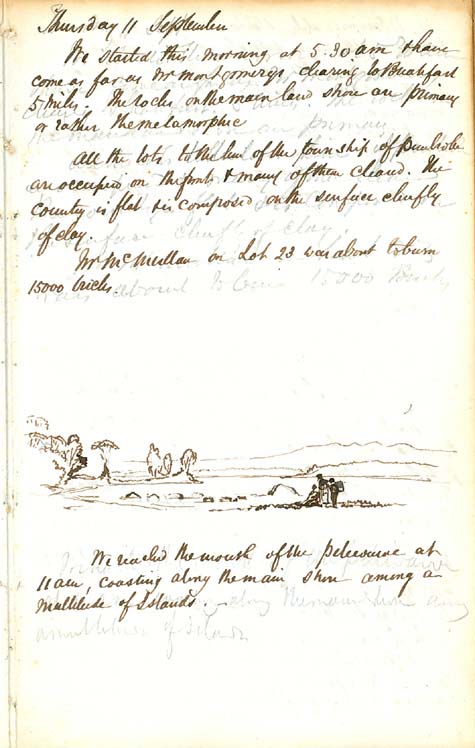 Thursday 11 September
We started this morning at 5.30 am & have
come as far as Mr Montgomerys clearing to Breakfast
5 miles. The rocks on the main land shore are primary
or rather the metamorphic
All the lots to the line of the township of Pembroke
are occupied on the front & many of them cleared. The
country is flat & is composed on the surface chiefly
of clay.
Mr McMullan on Lot 23 was about to burn
15000 bricks.
We reached the mouth of the at
11 am, coasting along the main shore among a
multitude of Islands